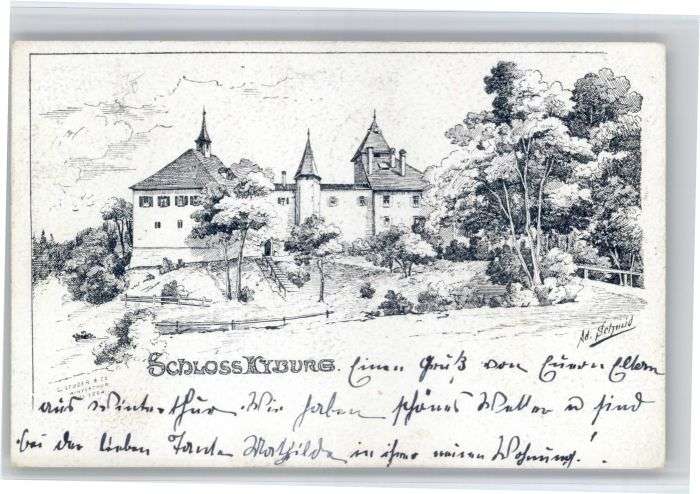 Ad. Schmid
SCHLOSS KYBURG. Einen Gruß von Euern Eltern
aus Winterthur. Wir haben schönes Wetter u sind
bei der lieben Tante Mathilde in ihrer neuen Wohnung!